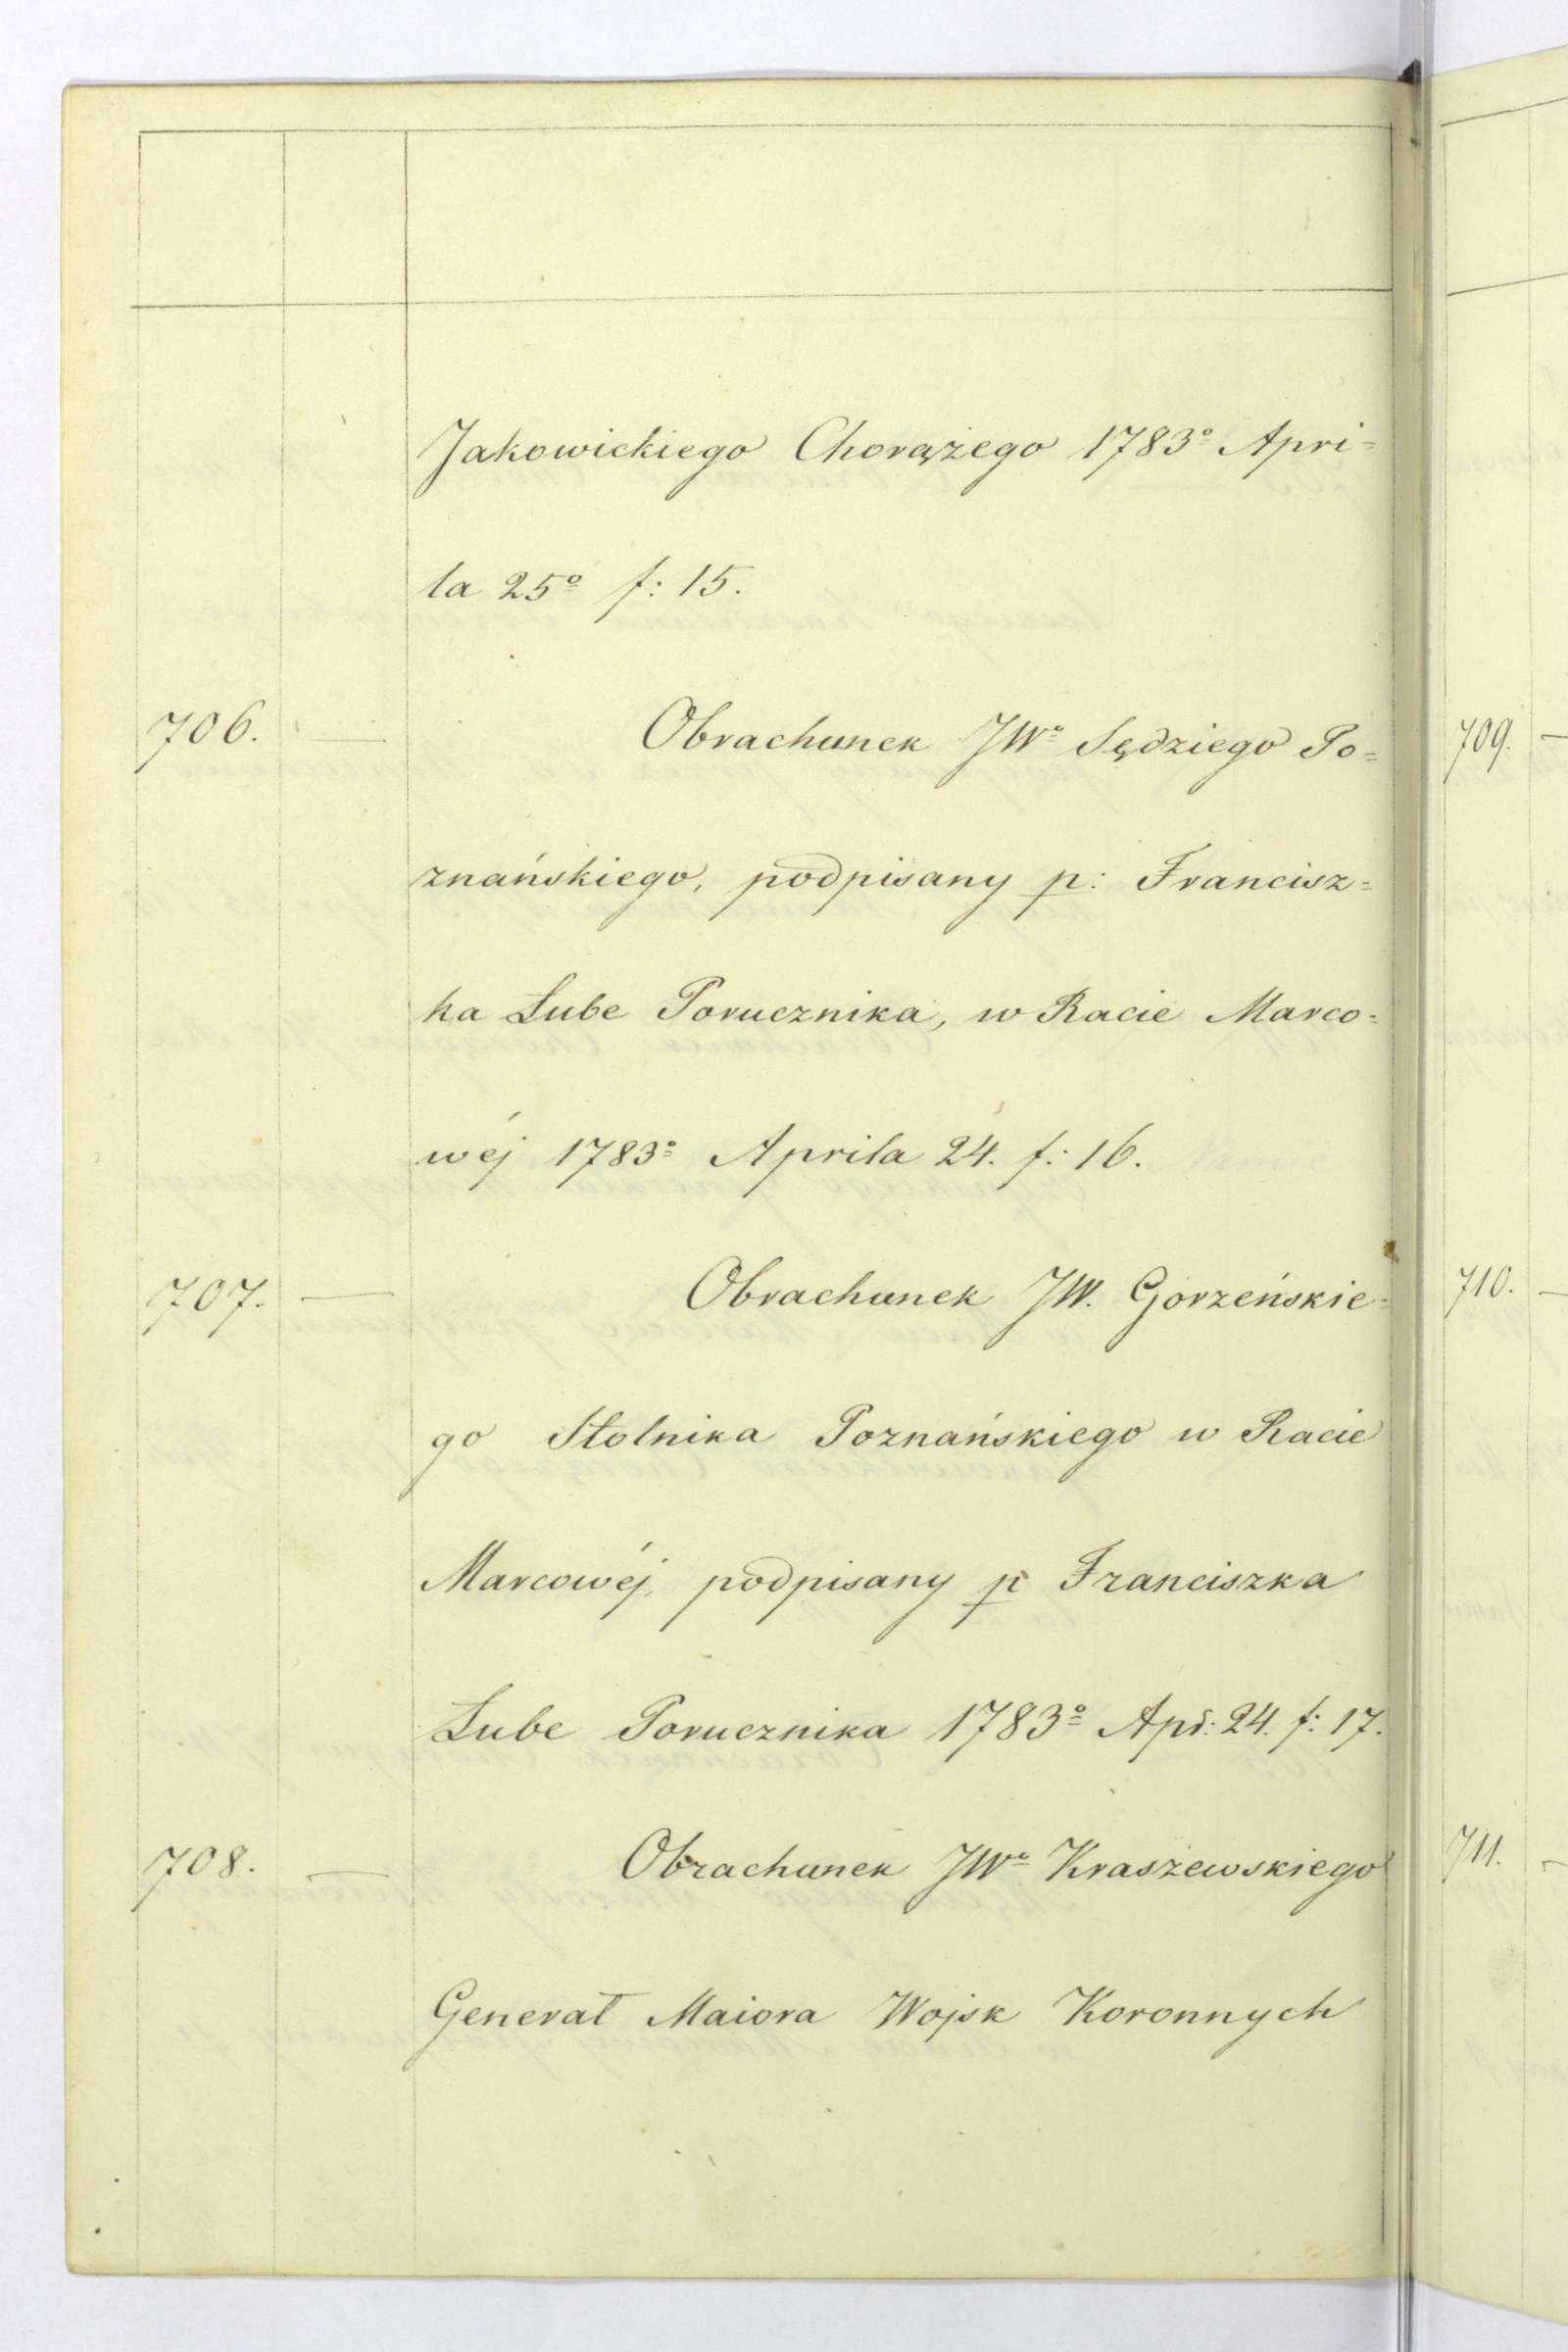 Jakowickiego Chorążego 1783º Apri=
la 25º f: 15.
706. — Obrachunek JWº Sędziego Po=
znańskiego, podpisany p: Francisz=
ka Lube Porucznika, w Racie Marco=
wéj 1783º Aprila 24. f: 16.
707. — Obrachunek JW. Gorzeńskie=
go Stolnika Poznańskiego w Racie
Marcowéj, podpisany p Franciszka
Lube Porucznika 1783º Apr: 24. f: 17.
708. — Obrachunek JWº Kraszewskiego
Generał Maiora Wojsk Koronnych
709. —
710. —
711. —